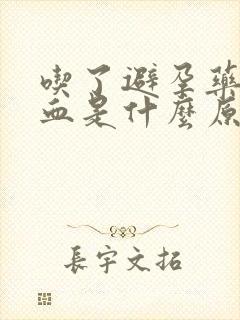 喫了避孕藥
血是什麼原
長宇文拓